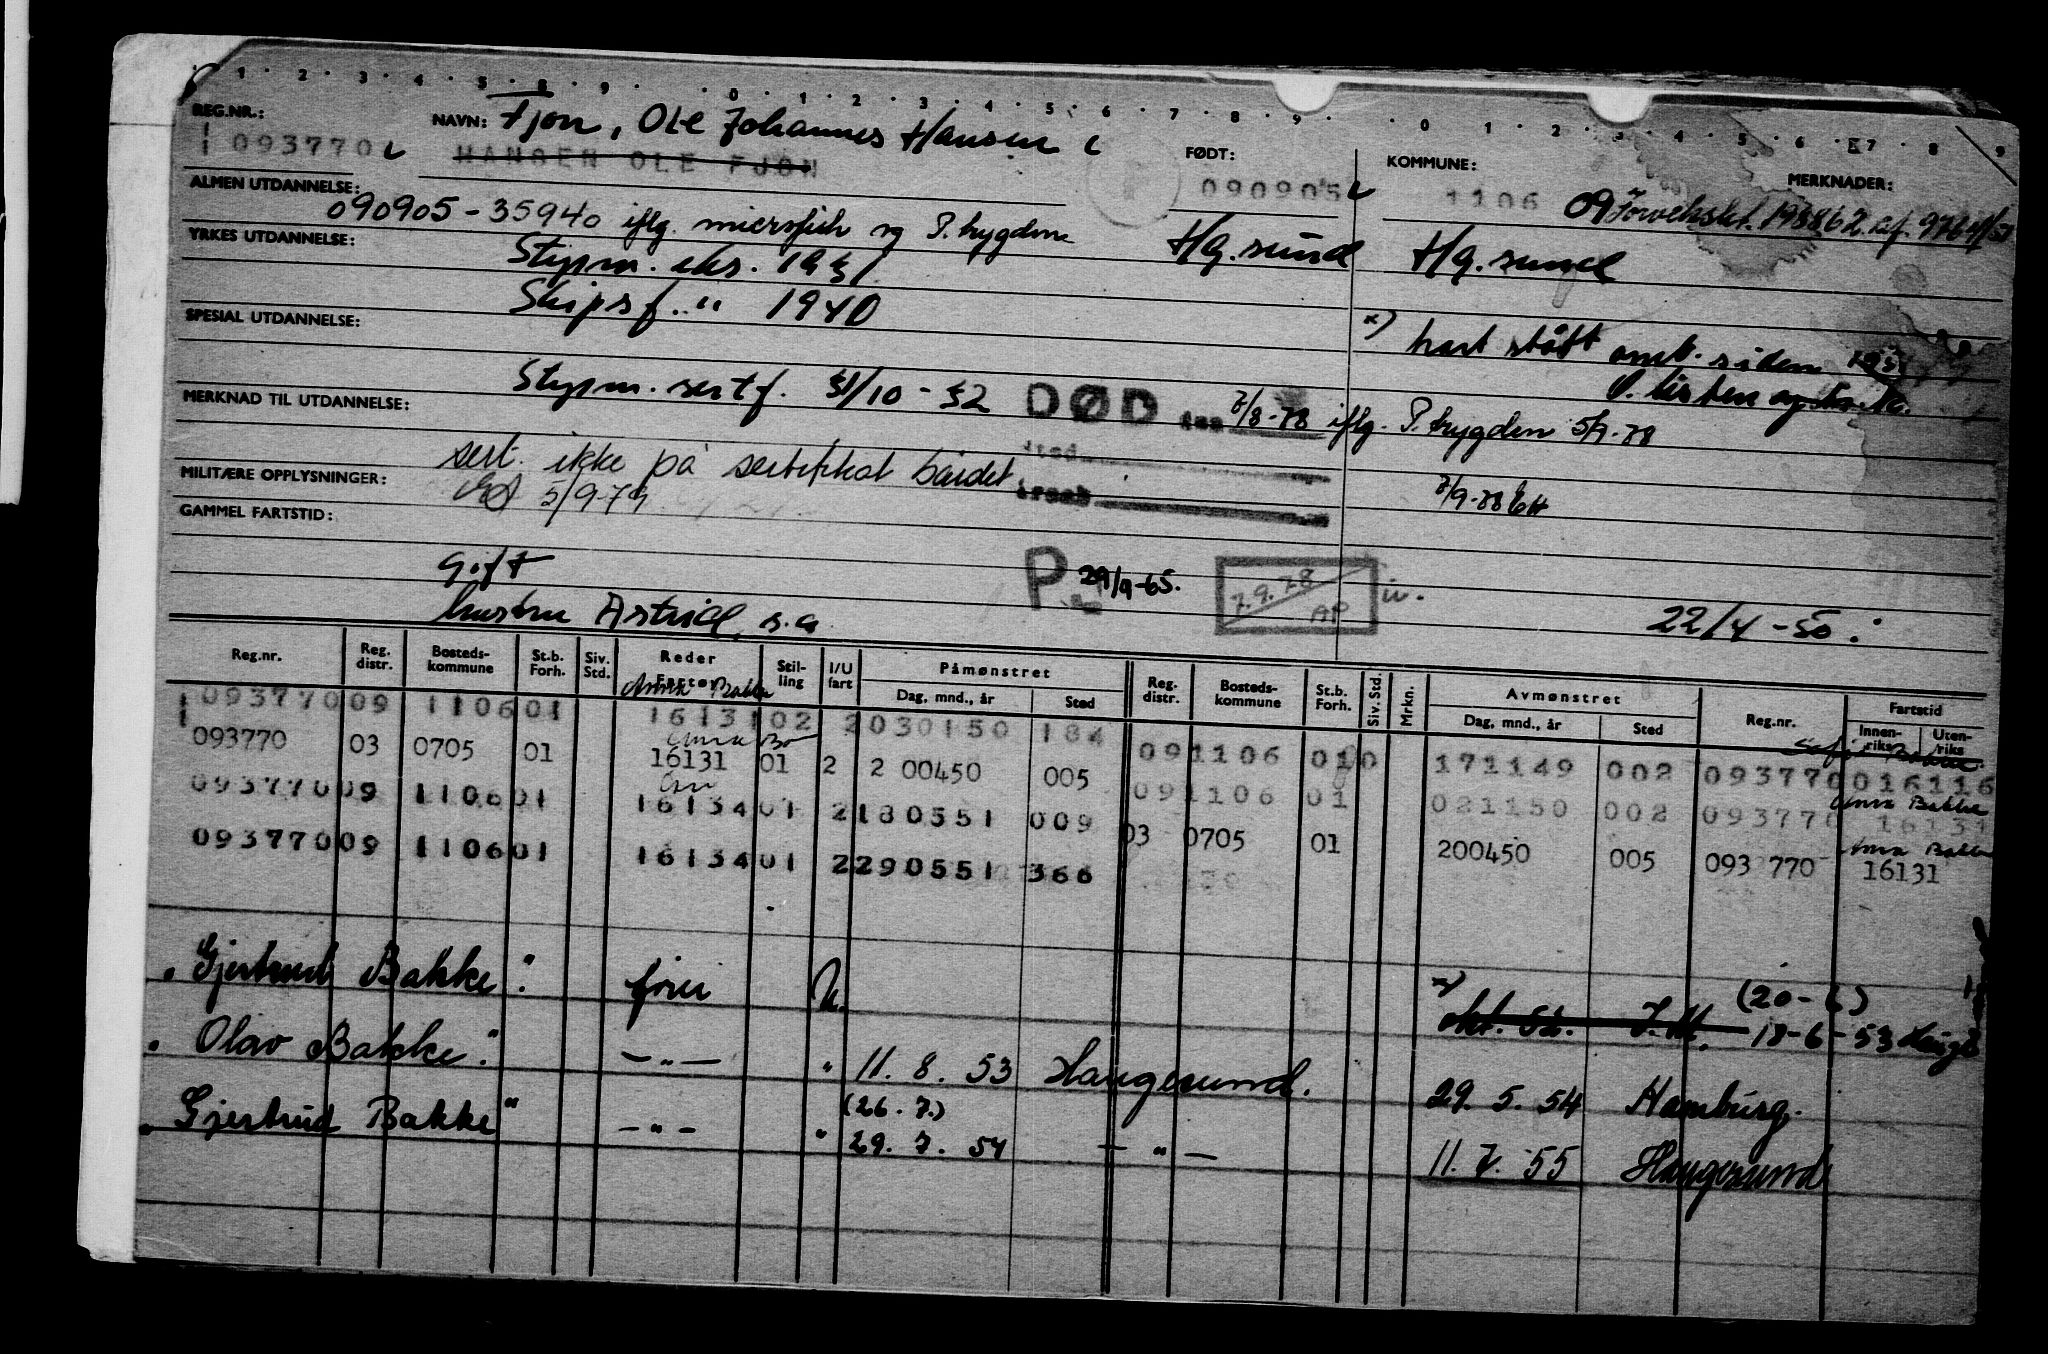 1 2 3 4 5 8 9 0 1 2 3 4 5 6 7 8 9 0 1 2 3 4 5 6 7 8 9
REG.NR.: NAVN: Fjon, Ole Johannes Hansen
093770 HANSEN OLE FJON FØDT: KOMMUNE: MERKNADER:
090905 1106 09
ALMEN UTDANNELSE: 090905-35940 iflg. microfich og P.trygden Hg.sund Hg.sund
YRKES UTDANNELSE: Styrm. eks. 1931
Skipsf. " 1940
SPESIAL UTDANNELSE:
x) hart stått omb. siden
Styrm. sertf. 31/10-32
MERKNAD TIL UTDANNELSE: DØD 7/8-78 iflg. P.trygden 5/9-78
sert. ikke på sertifikat båndet
MILITÆRE OPPLYSNINGER: 5/9-79 7/9-78
GAMMEL FARTSTID:
Gift P 29/9-65. 7.9.78 AP
hustru Astrid, s.a. 22/4-50.
Reg.nr. Reg. distr. Bosteds-kommune St.b. Forh. Siv. Std. Reder Fartøy Stil-ling I/U fart Påmønstret Dag, mnd., år Sted Reg. distr. Bosteds-kommune St.b. Forh. Siv. Std. Mrkn. Avmønstret Dag, mnd., år Sted Reg.nr. Fartstid Innen-riks Uten-riks
093770 09 1106 01 16131 02 2 030150 184
091106 010 171149 002 093770 016116
093770 03 0705 01 16131 01 2 2 00450 005
Anna Bakke
091106 01 021150 002 093770 16131
093770 09 1106 01 16134 01 2 180551 009
Anna Bakke
03 0705 01 200450 005 093 770 16131
093770 09 1106 01 16134 01 2 290551 366
"Gjertrud Bakke" U. x) okt. 52. (20-6) 18-6-53
"Olav Bakke" — " — " 11. 8. 53 Haugesund. 29. 5. 54 Hamburg.
(26. 7.)
"Gjertrud Bakke" — " — " 29. 7. 54 — " — 11. 7. 55 Haugesund